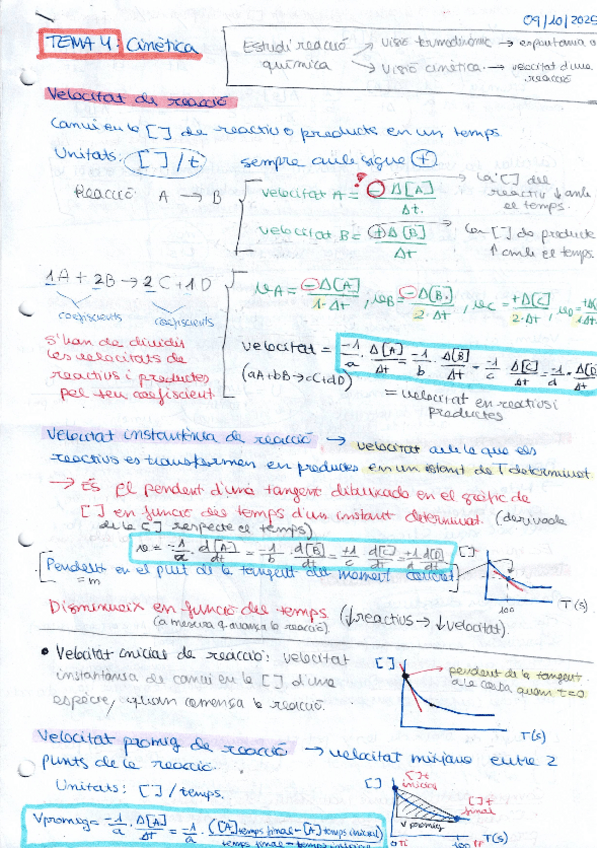 09/10/2025
TEMA 4: Cinètica
Estudi reacció química → visió termodinàmic → espontania o
→ visió cinètica → velocitat d'una reacció
Velocitat de reacció
Canvi en la [ ] de reactiu o productes en un temps.
Unitats: [ ] / t sempre amb signe (+)
Reacció A → B
velocitat A = - Δ[A] / Δt. → La [ ] del reactiu ↓ amb el temps.
velocitat B = + Δ[B] / Δt → La [ ] de producte ↑ amb el temps
1A + 2B → 2C + 1D
coeficients coeficients
vA = -Δ[A] / 1·Δt, vB = -Δ[B] / 2·Δt, vC = +Δ[C] / 2·Δt, vD =
s'han de dividir
les velocitats de
reactius i productes
pel seu coeficient
velocitat = -1/a · Δ[A]/Δt = -1/b · Δ[B]/Δt = -1/c Δ[C]/Δt = -1/d · Δ[D]
(aA+bB→cC+dD)
= velocitat en reactius i productes
Velocitat instantània de reacció → velocitat a la que els
reactius es transformen en productes en un istant de T determinat
→ És el pendent d'una tangent dibuixada en el gràfic de
[ ] en funció des temps d'un instant determinat. (derivada
de la [ ] respecte el temps)
v = -1/a · d[A]/dt = -1/b · d[B]/dt = +1/c · d[C]/dt = +1/d d[D]/dt
Pendent en el punt de la tangent del moment concret
= m
[ ]
100
T(s)
Disminueix en funció des temps (↓reactius → ↓velocitat).
(a mesura q avança la reacció)
• Velocitat inicial de reacció: velocitat
instantània de canvi en la [ ] d'una
espècie, quan comença la reacció.
[ ]
pendent de la tangent
a la corba quan t=0
T(s)
Velocitat promig de reacció → velocitat mitjana entre 2
punts de la reacció.
Unitats: [ ] / temps.
Vpromig = -1/a · Δ[A]/Δt = -1/a · ([A] temps final - [A] temps inicial) / temps final - temps inicial
[ ]
[ ]t inicial
[ ]t final
v promig
0 Ti
100 Tf
T(s)